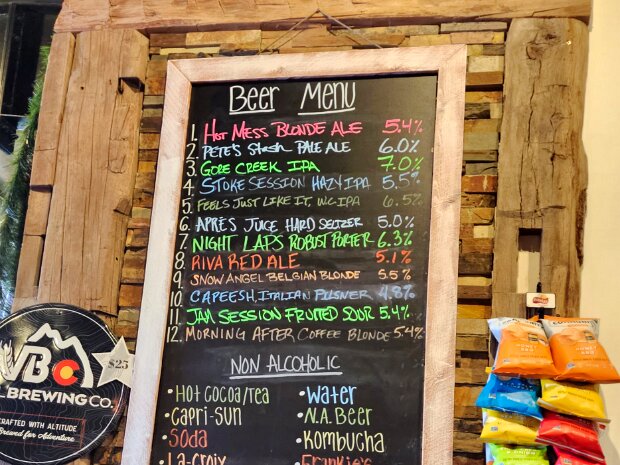 Beer Menu
1. Hot Mess Blonde Ale 5.4%
2. Pete's Stash Pale Ale 6.0%
3. Gore Creek IPA 7.0%
4. Stoke Session Hazy IPA 5.5%
5 Feels Just Like It, W.C. IPA 6.5%
6 Après Juice Hard Seltzer 5.0%
7. Night Laps Robust Porter 6.3%
8. Riva Red Ale 5.1%
9. Snow Angel Belgian Blonde 5.5%
10. Capeesh, Italian Pilsner 4.8%
11. Jam Session Fruited Sour 5.4%
12. Morning After Coffee Blonde 5.4%
Non Alcoholic
• Hot Cocoa/Tea • Water
• Capri-Sun • N.A. Beer
• Soda • Kombucha
• La-Croix • Frankie's
VBC
$25
L BREWING CO.
CRAFTED WITH ALTITUDE
Brewed for Adventure